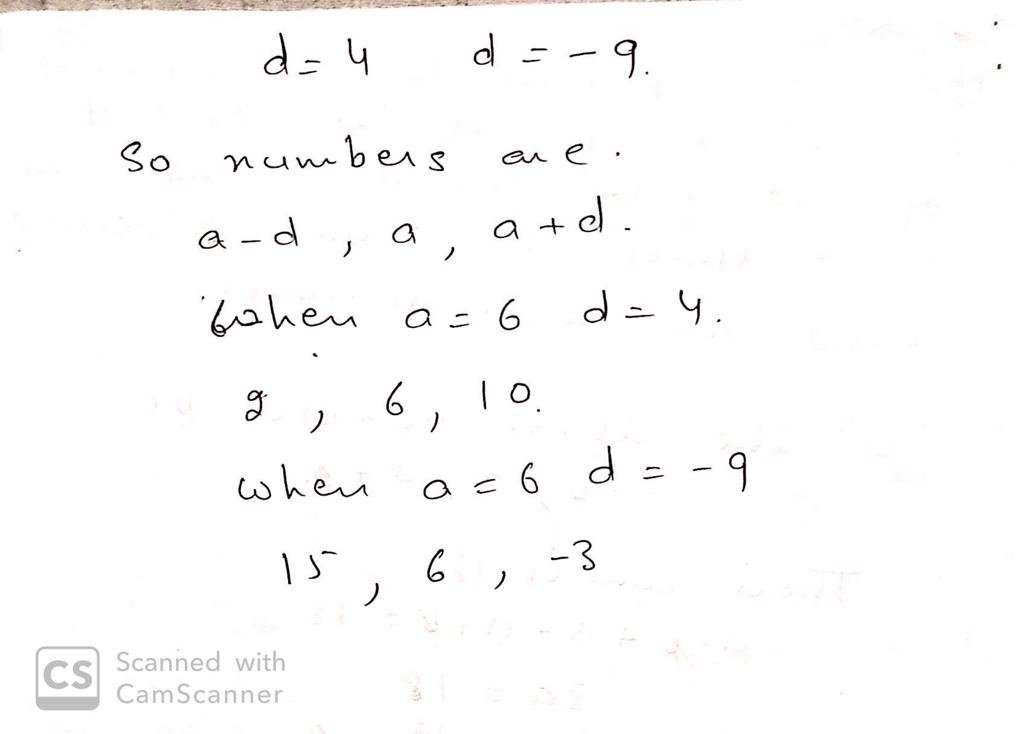 d = 4 d = - 9.
So numbers are.
a - d , a , a + d.
When a = 6 d = 4.
2 , 6 , 10.
when a = 6 d = - 9
15 , 6 , -3
CS Scanned with
CamScanner